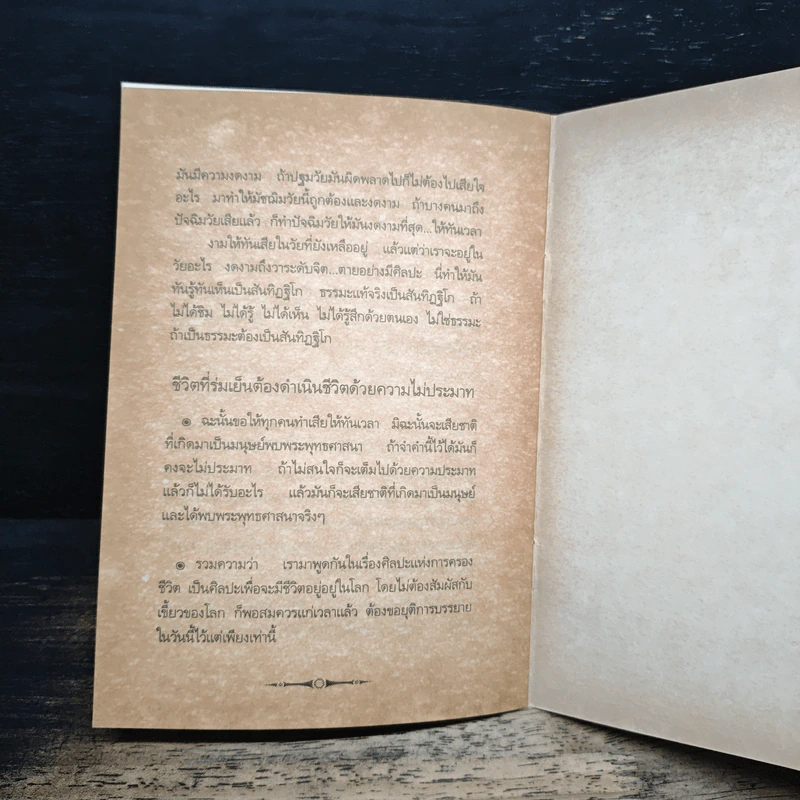 มันมีความงดงาม ถ้าปฐมวัยมันผิดพลาดไปก็ไม่ต้องไปเสียใจ
อะไร มาทำให้มัชฌิมวัยนี้ถูกต้องและงดงาม ถ้าบางคนมาถึง
ปัจฉิมวัยเสียแล้ว ก็ทำปัจฉิมวัยให้มันงดงามที่สุด...ให้ทันเวลา
งามให้ทันเสียในวัยที่ยังเหลืออยู่ แล้วแต่ว่าเราจะอยู่ใน
วัยอะไร งดงามถึงวาระดับจิต...ตายอย่างมีศิลปะ นี่ทำให้มัน
ทันรู้ทันเห็นเป็นสันทิฏฐิโก ธรรมะแท้จริงเป็นสันทิฏฐิโก ถ้า
ไม่ได้ชิม ไม่ได้รู้ ไม่ได้เห็น ไม่ได้รู้สึกด้วยตนเอง ไม่ใช่ธรรมะ
ถ้าเป็นธรรมะต้องเป็นสันทิฏฐิโก
ชีวิตที่ร่มเย็นต้องดำเนินชีวิตด้วยความไม่ประมาท
๏ ฉะนั้นขอให้ทุกคนทำเสียให้ทันเวลา มิฉะนั้นจะเสียชาติ
ที่เกิดมาเป็นมนุษย์พบพระพุทธศาสนา ถ้าจำคำนี้ไว้ได้มันก็
คงจะไม่ประมาท ถ้าไม่สนใจก็จะเต็มไปด้วยความประมาท
แล้วก็ไม่ได้รับอะไร แล้วมันก็จะเสียชาติที่เกิดมาเป็นมนุษย์
และได้พบพระพุทธศาสนาจริงๆ
๏ รวมความว่า เรามาพูดกันในเรื่องศิลปะแห่งการครอง
ชีวิต เป็นศิลปะเพื่อจะมีชีวิตอยู่อยู่ในโลก โดยไม่ต้องสัมผัสกับ
เขี้ยวของโลก ก็พอสมควรแก่เวลาแล้ว ต้องขอยุติการบรรยาย
ในวันนี้ไว้แต่เพียงเท่านี้